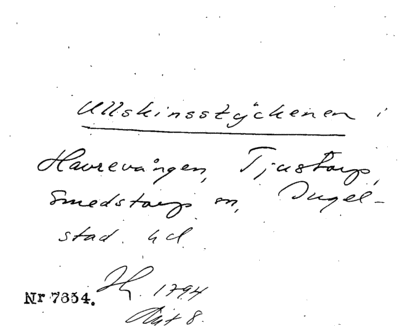 Ullskinsstyckenen i
Havrevången, Tjustorp,
Smedstorps sn, Ingel-
stad hd
Nr 7354. 1794
Akt 8.